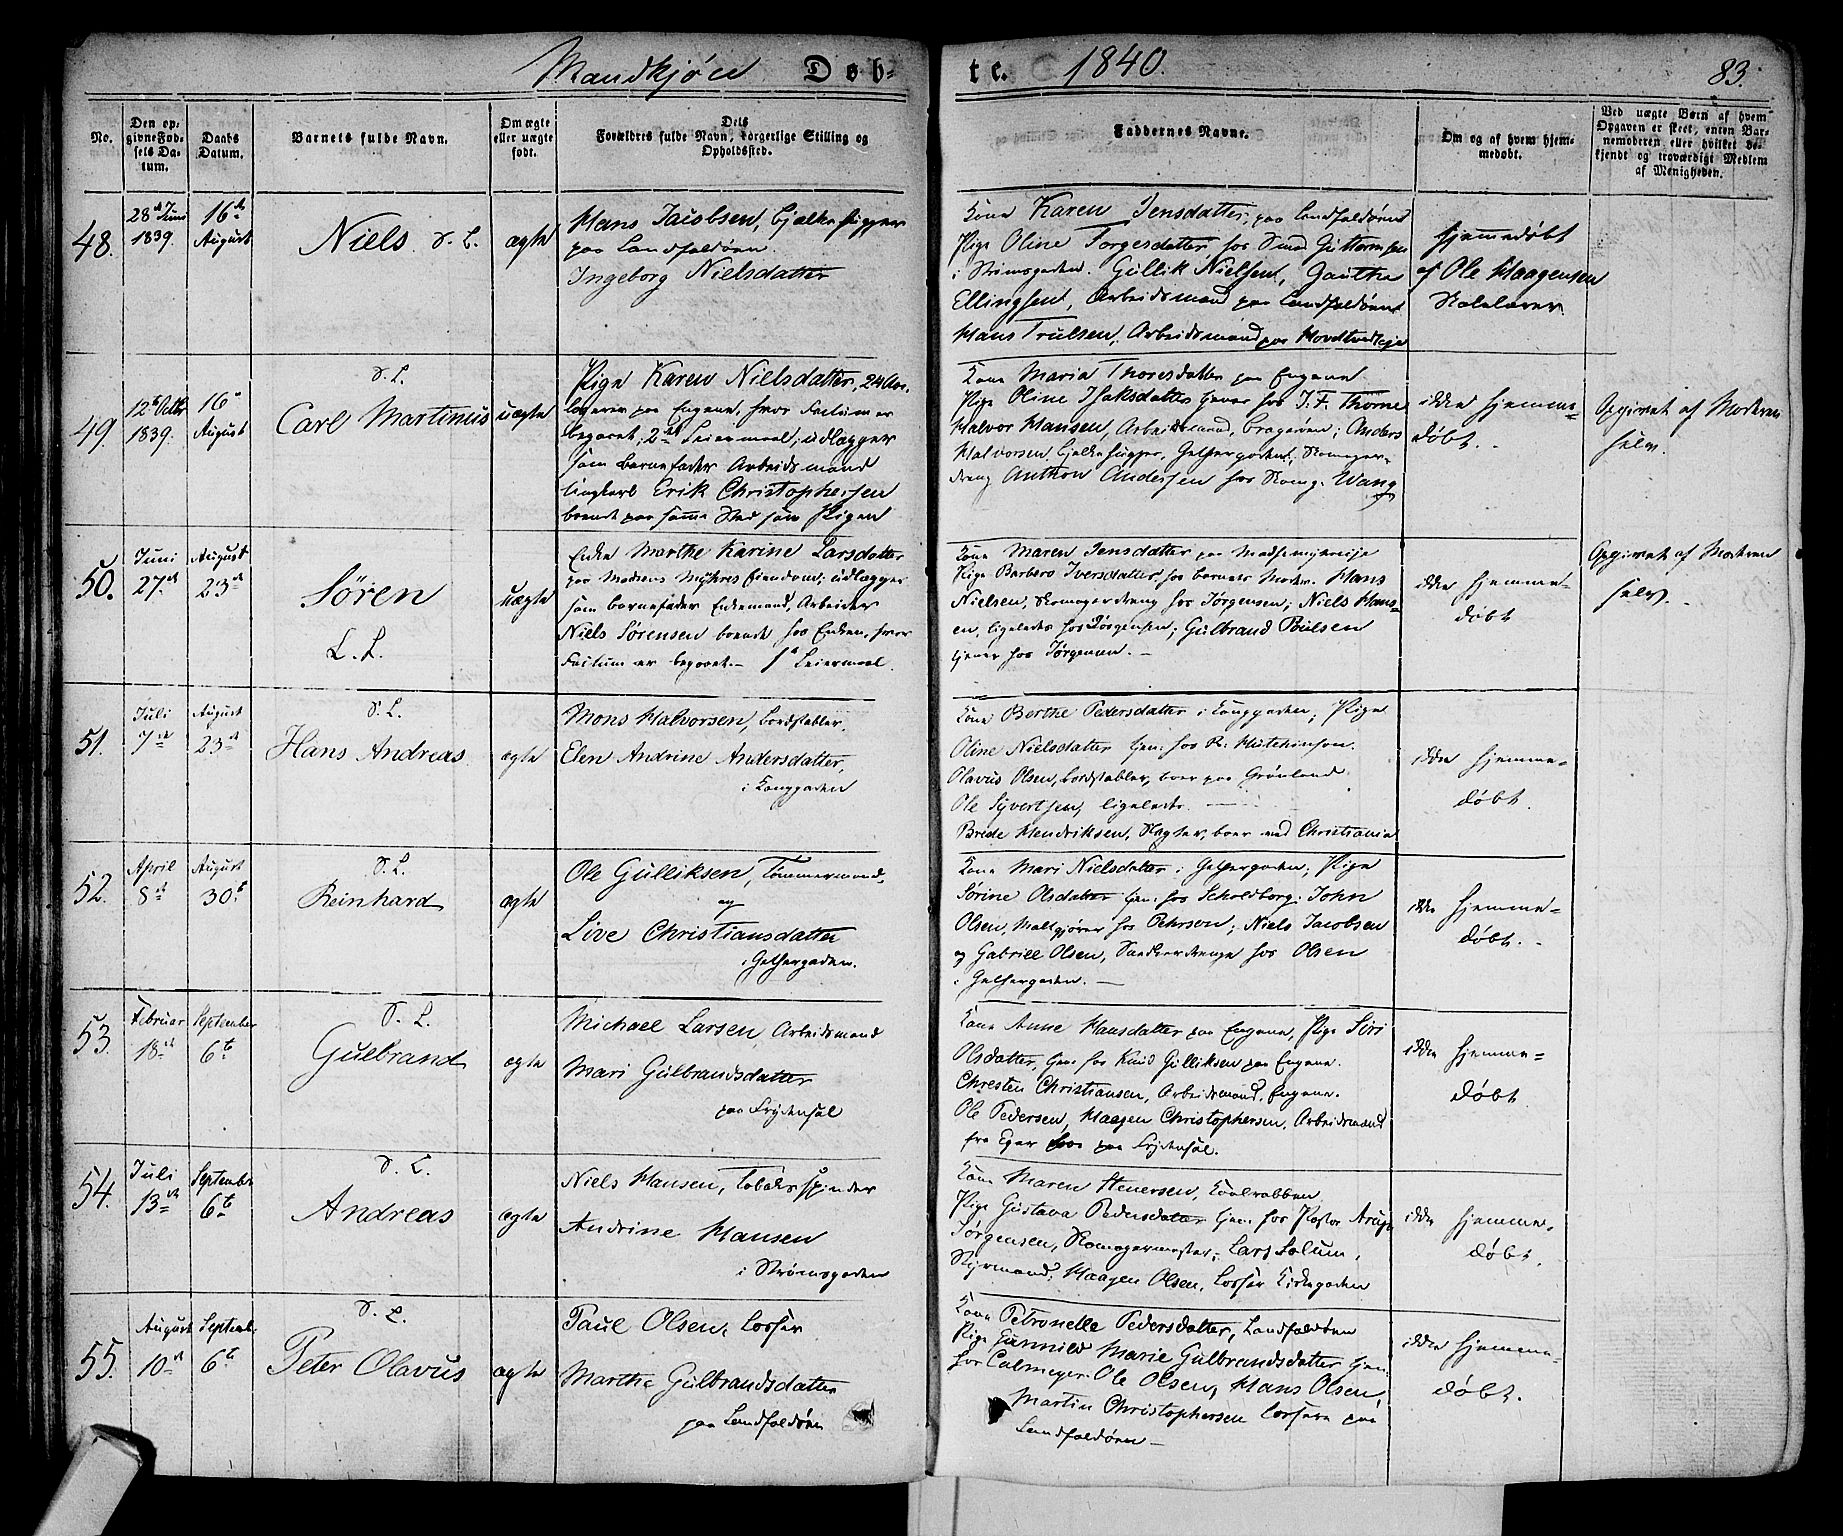 Mandkjøn Døb-
te. 1840. 83.
No.
Den op-
givne Fød-
sels Da-
tum.
Daabs
Datum.
Barnets fulde Navn.
Om ægte
eller uægte
født.
Dels
Forældres fulde Navn, borgerlige Stilling og
Opholdssted.
Faddernes Navne.
Om og af hvem hjem-
medøbt.
Ved uægte Børn af hvem
Opgaven er skeet, enten Bar-
nemoderen eller hvilket be-
kjendt og troværdigt Medlem
af Menigheden.
48.
28de Juni
1839.
16de
August
Niels. S. L.
ægte
Hans Jacobsen, bjælkehugger
paa Landfaldøen
Ingeborg Nielsdatter
Kone Karen Jensdatter, paa Landfaldøen
Pige Oline Torgersdatter hos Smed Guttormsen
i Strømsgaden. Gullik Nielsen, Gauthe
Ellingsen, Arbeidsmand paa Landfaldøen
Hans Trulsen, Arbeidsmand paa Hovdtvedteje
hjemmedøbt
af Ole Haagensen
Skolelærer
49.
12te Octbr
1839.
16de
August
S. L.
Carl Martinus
uægte
Pige Karen Nielsdatter, 24 Aar,
logerer paa Engene, hvor Factum er
begaaet, 2det Leiermaal; udlægger
som barnefader Arbeidsmand
ungkarl Erik Christophersen
boende paa samme Sted som Pigen
Kone Maria Thoresdatter paa Engene
Pige Oline Isaksdatter tjener hos J. F. Thorne
Halvor Hansen, Arbeidsmand, Bragerøen; Anders
Halvorsen, bjelkehugger, Gelhergaden, Skomager-
dreng Anthon Andersen hos Skomg. Wang
ikke hjemme-
døbt.
Opgivet af Moderen
selv.
50.
Juni
27de
August
23de
Søren
L. L.
uægte
Enke Marthe Karine Larsdatter
paa Madsens Myhres Eiendom; udlægger
som barnefader Enkemand, Arbeider
Niels Sørensen boende hos Enken, hvor
Factum er begaaet. 1ste Leiermaal.
Kone Maren Jensdatter paa Madsemyhreeie
Pige Barbero Iversdatter hos barnets Moder. Hans
Nielsen, Skomagerdreng hos Jørgensen; Niels Hans-
en, ligeledes hos Jørgensen; Gulbrand Paulsen
tjener hos Jørgensen.
ikke hjemme-
døbt
Opgivet af Moderen
selv.
51.
Juli
7de
August
23de
S. L.
Hans Andreas
ægte
Mons Halvorsen, bordstabler,
Elen Andrine Andersdatter,
i Tanggaden
Kone Berthe Pedersdatter i Tanggaden; Pige
Oline Nielsdatter tjen: hos R. Hutchinson.
Olavus Olsen, bordstabler, boer paa Grønland.
Ole Syvertsen, ligeledes.
Brede Hendriksen, Slagter, boer ved Christiania
ikke hjemme-
døbt.
52.
April
8de
August
30te
S. L.
Reinhard
ægte
Ole Gulliksen, Tømmermand,
og
Live Christiansdatter
i Gelhergaden.
Kone Mari Nielsdatter i Gelhergaden; Pige
Sørine Olsdatter tjen: hos Scholdborg. John
Olsen, Maltgjører hos Pehrson; Niels Jacobsen
og Gabriel Olsen, Snedkerdrenge hos Olsen
i Gelhergaden.
ikke hjemme-
døbt.
53.
Februar
18de
September
6te
S. L.
Gulbrand
ægte
Michael Larsen, Arbeidsmand
Mari Gulbrandsdatter
paa Frydensøl
Kone Anne Hansdatter paa Engene, Pige Siri
Olsdatter, tjen: hos Knud Gulliksen paa Engene.
Chresten Christiansen, Arbeidsmand, Engene.
Ole Pedersen, Haagen Christophersen, Arbeidsmænd
fra Eger paa Frydensøl.
ikke hjemme-
døbt
54.
Juli
13de
September
6te
S. L.
Andreas
ægte
Niels Hansen, Tobaksspinder
Andrine Hansen
i Strømsgaden
Kone Maren Stenersen, Toolrobben
Pige Gustava Pedersdatter tjen: hos Pastor Arup
Jørgensen, Skomagermester; Lars Solum,
Styrmand; Haagen Olsen, Losser Kirkegaden
ikke hjemme-
døbt.
55.
August
10de
Septemb.
6te
S. L.
Peter Olavus
ægte
Paul Olsen, Losser
Marthe Gulbrandsdatter
paa Landfaldøen
Kone Petronelle Pedersdatter, Landfaldøen
Pige Gunnild Marie Gulbrandsdatter tjen:
hos Calmeyer. Ole Olsen, Hans Olsen
Martin Christophersen Lossere paa
Landfaldøen
ikke hjemme-
døbt.